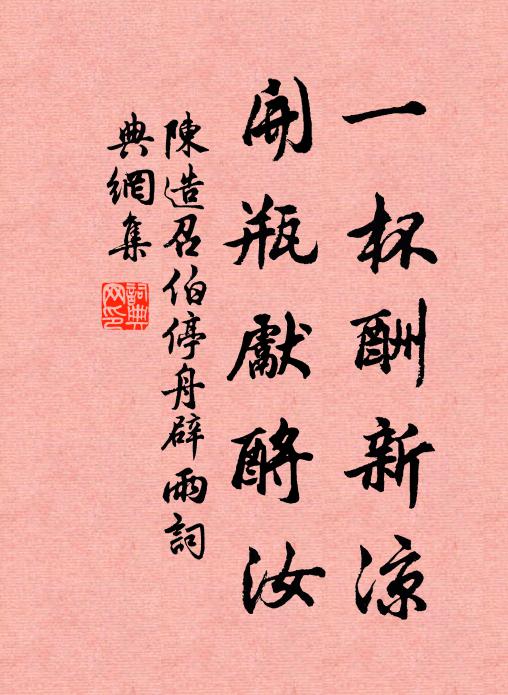 一杯酬新涼
開瓶獻酹汝
陳造召伯停舟辟雨詞
典網集
詞典網印